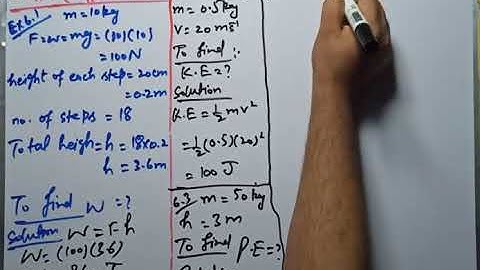 Ex 6.1 m=10kg
F=w=mg=(10)(10)
=100N
height of each step=20cm
=0.2m
no. of steps = 18
Total heigh=h=18x0.2
h=3.6m
To find w=?
Solution W=F.h
W=(100)(3.6)
m=0.5kg
V=20ms⁻¹
To find:
K.E=?
Solution
K.E=½mv²
=½(0.5)(20)²
=100J
6.3 m=50kg
h=3m
To find P.E=?